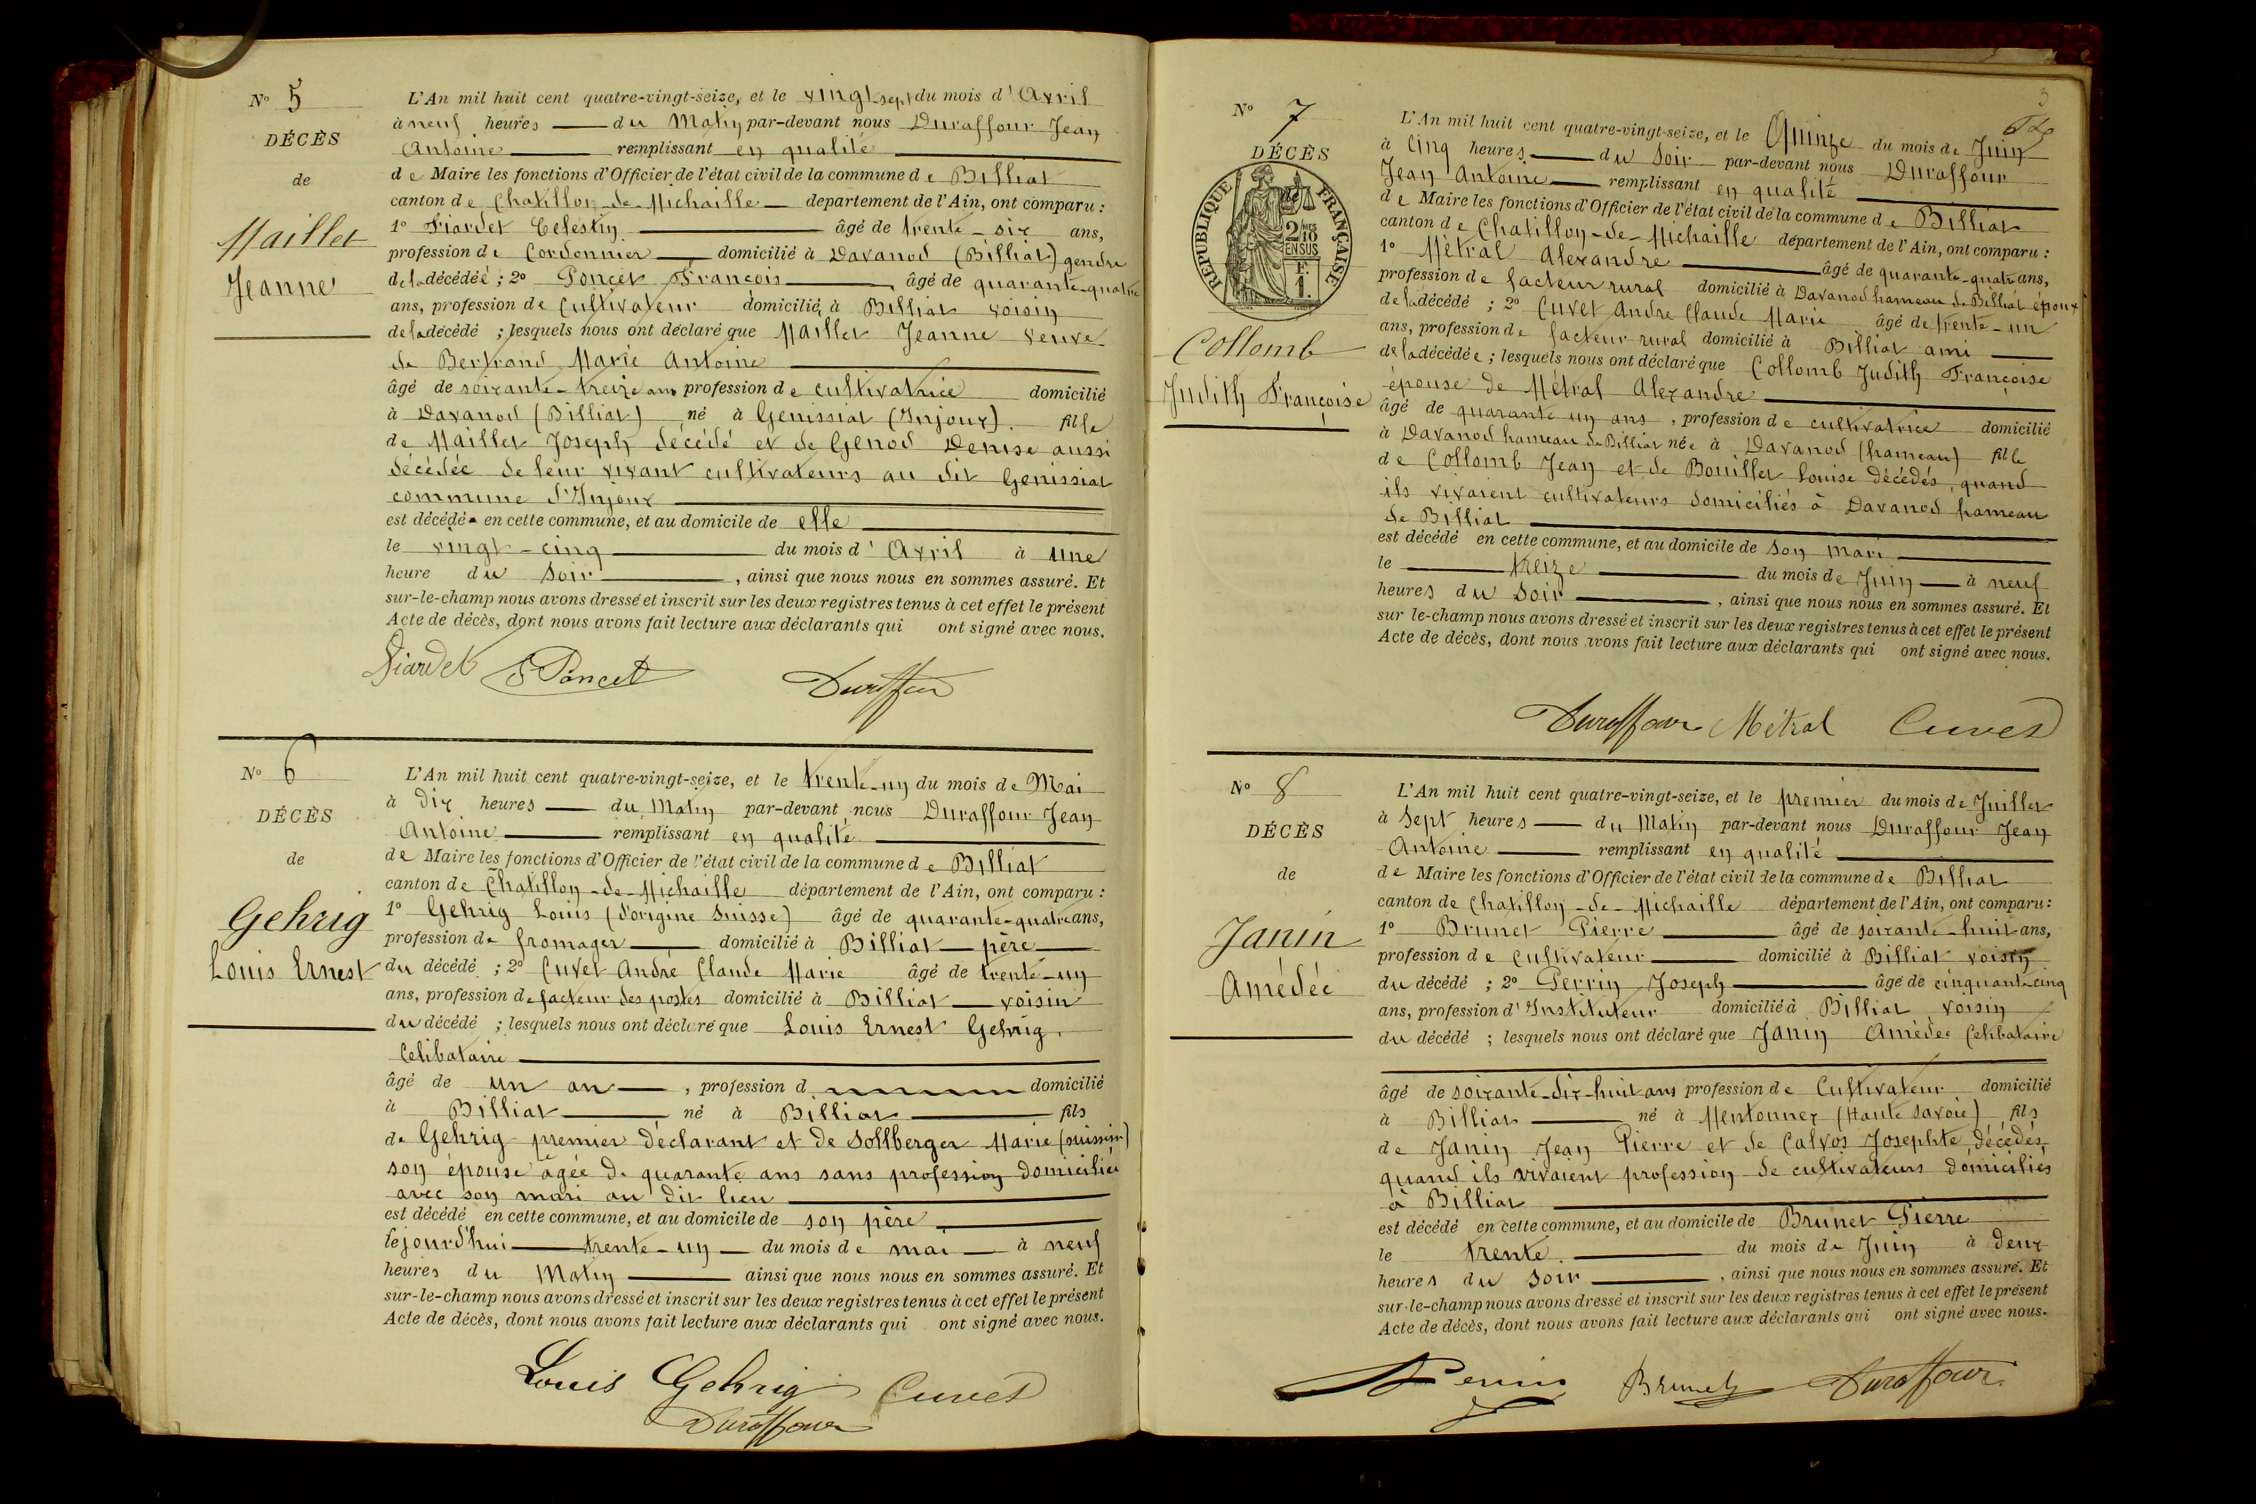 N° 5
DÉCÈS
de
Maillet
Jeanne
L'An mil huit cent quatre-vingt-seize, et le vingt-sept du mois d'Avril
à neuf heures du Matin par-devant nous Duraffour Jean
Antoine remplissant en qualité
de Maire les fonctions d'Officier de l'état civil de la commune de Billiat
canton de Chatillon-de-Michaille departement de l'Ain, ont comparu :
1° Fiardet Celestin âgé de trente-six ans,
profession de Cordonnier domicilié à Davanod (Billiat) gendre
de la décédée ; 2° Poncet François âgé de quarante-quatre
ans, profession de Cultivateur domicilié à Billiat voisin
de la décédé ; lesquels nous ont déclaré que Maillet Jeanne veuve
de Bertrand Marie Antoine
âgé de soixante-treize ans profession de cultivatrice domicilié
à Davanod (Billiat) né à Genissiat (Injoux). fille
de Maillet Joseph décédé et de Genod Denise aussi
décédée de leur vivant cultivateurs au dit Genissiat
commune d'Injoux
est décédé en cette commune, et au domicile de elle
le vingt-cinq du mois d'Avril à une
heure du soir , ainsi que nous nous en sommes assuré. Et
sur-le-champ nous avons dressé et inscrit sur les deux registres tenus à cet effet le présent
Acte de décès, dont nous avons fait lecture aux déclarants qui ont signé avec nous.
Fiardet F Poncet Duraffour
N° 6
DÉCÈS
de
Gehrig
Louis Ernest
L'An mil huit cent quatre-vingt-seize, et le trente-un du mois de Mai
à Dix heures du Matin par-devant nous Duraffour Jean
Antoine remplissant en qualité
de Maire les fonctions d'Officier de l'état civil de la commune de Billiat
canton de Chatillon-de-Michaille département de l'Ain, ont comparu :
1° Gehrig Louis (d'origine Suisse) âgé de quarante-quatre ans,
profession de fromager domicilié à Billiat père
du décédé ; 2° Cuvet André Claude Marie âgé de trente-un
ans, profession de facteur des postes domicilié à Billiat voisin
du décédé ; lesquels nous ont déclaré que Louis Ernest Gehrig.
Celibataire
âgé de un an , profession d domicilié
à Billiat né à Billiat fils
de Gehrig premier déclarant et de Sollberger Marie
son épouse âgée de quarante ans sans profession domiciliée
avec son mari au dit lieu
est décédé en cette commune, et au domicile de son père
le jourd'hui trente-un du mois de mai à neuf
heures du Matin ainsi que nous nous en sommes assuré. Et
sur-le-champ nous avons dressé et inscrit sur les deux registres tenus à cet effet le présent
Acte de décès, dont nous avons fait lecture aux déclarants qui ont signé avec nous.
Louis Gehrig Cuvet
Duraffour
3
N° 7
DÉCÈS
de
RÉPUBLIQUE FRANÇAISE
2/10 EN SUS
F. 1.
Collomb
Judith Françoise
L'An mil huit cent quatre-vingt-seize, et le Quinze du mois de Juin
à Cinq heures du Soir par-devant nous Duraffour
Jean Antoine remplissant en qualité
de Maire les fonctions d'Officier de l'état civil de la commune de Billiat
canton de Chatillon-de-Michaille département de l'Ain, ont comparu :
1° Métral Alexandre âgé de quarante-quatre ans,
profession de facteur rural domicilié à Davanod hameau de Billiat époux
de la décédé ; 2° Cuvet André Claude Marie âgé de trente-un
ans, profession de facteur rural domicilié à Billiat ami
de la décédée ; lesquels nous ont déclaré que Collomb Judith Françoise
épouse de Métral Alexandre
âgé de quarante un ans , profession de cultivatrice domicilié
à Davanod hameau de Billiat née à Davanod (hameau) fille
de Collomb Jean et de Bouillet Louise décédés, quand
ils vivaient cultivateurs domiciliés à Davanod hameau
de Billiat
est décédé en cette commune, et au domicile de son mari
le treize du mois de Juin à neuf
heures du Soir , ainsi que nous nous en sommes assuré. Et
sur le-champ nous avons dressé et inscrit sur les deux registres tenus à cet effet le présent
Acte de décès, dont nous avons fait lecture aux déclarants qui ont signé avec nous.
Duraffour Métral Cuvet
N° 8
DÉCÈS
de
Janin
Amédée
L'An mil huit cent quatre-vingt-seize, et le premier du mois de Juillet
à Sept heures du Matin par-devant nous Duraffour Jean
Antoine remplissant en qualité
de Maire les fonctions d'Officier de l'état civil de la commune de Billiat
canton de Chatillon-de-Michaille département de l'Ain, ont comparu :
1° Brunet Pierre âgé de soixante-huit ans,
profession de Cultivateur domicilié à Billiat voisin
du décédé ; 2° Perrin Joseph âgé de cinquante cinq
ans, profession d'Instituteur domicilié à Billiat voisin
du décédé ; lesquels nous ont déclaré que Janin Amédée Celibataire
âgé de soixante-dix-huit ans profession de Cultivateur domicilié
à Billiat né à Mentonnex (Haute Savoie) fils
de Janin Jean Pierre et de Calvos Josephte décédés,
quand ils vivaient profession de cultivateurs domiciliés
à Billiat
est décédé en cette commune, et au domicile de Brunet Pierre
le trente. du mois de Juin à deux
heures du soir , ainsi que nous nous en sommes assuré. Et
sur-le-champ nous avons dressé et inscrit sur les deux registres tenus à cet effet le présent
Acte de décès, dont nous avons fait lecture aux déclarants qui ont signé avec nous.
Perrin Brunet Duraffour